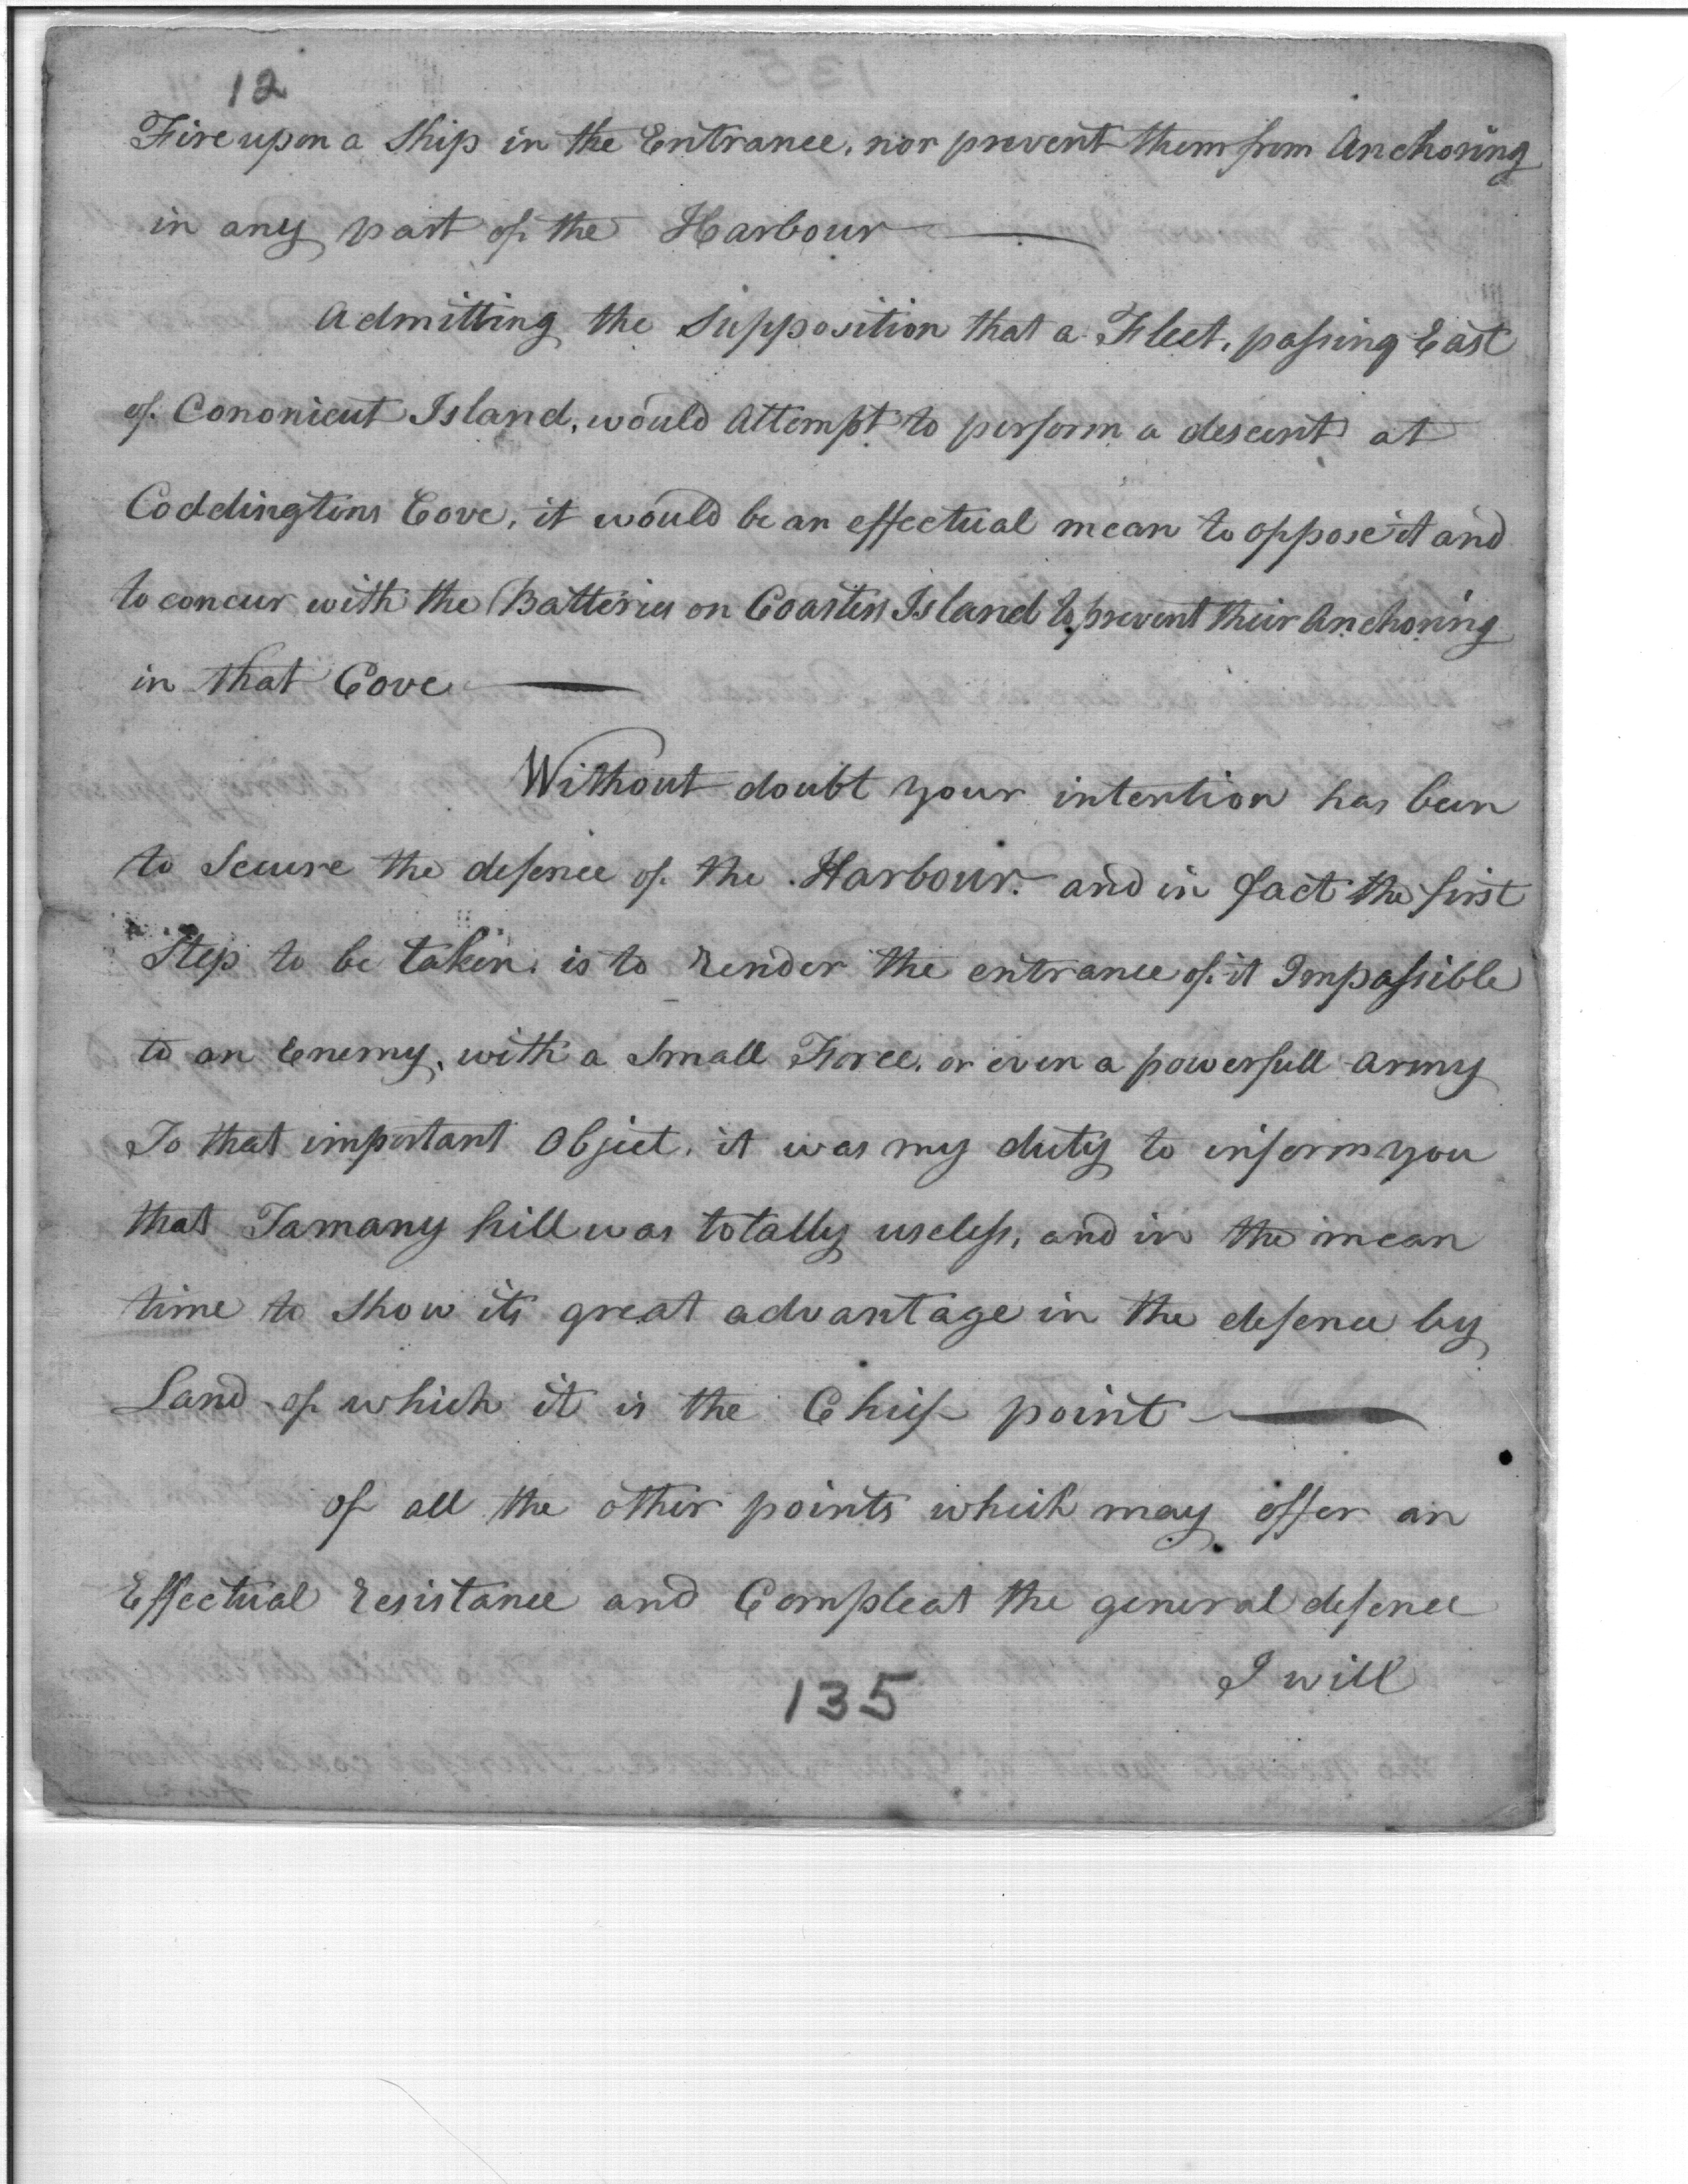 12
Fire upon a Ship in the Entrance, nor prevent them from Anchoring
in any part of the Harbour
Admitting the Supposition that a Fleet, passing East
of Cononicut Island, would Attempt to perform a descent at
Coddingtons Cove, it would be an effectual mean to oppose it and
to concur with the Batteries on Coasters Island to prevent their Anchoring
in that Cove
Without doubt your intention has been
to Secure the defence of the Harbour. and in fact the first
Step to be taken, is to render the entrance of it Impassible
to an Enemy, with a Small Force, or even a powerfull army
To that important Object, it was my duty to inform you
that Tamany hill was totally useless, and in the mean
time to Show its great advantage in the defence by
Land of which it is the Chief point
of all the other points which may offer an
Effectual resistance and Compleat the general defence
I will
135